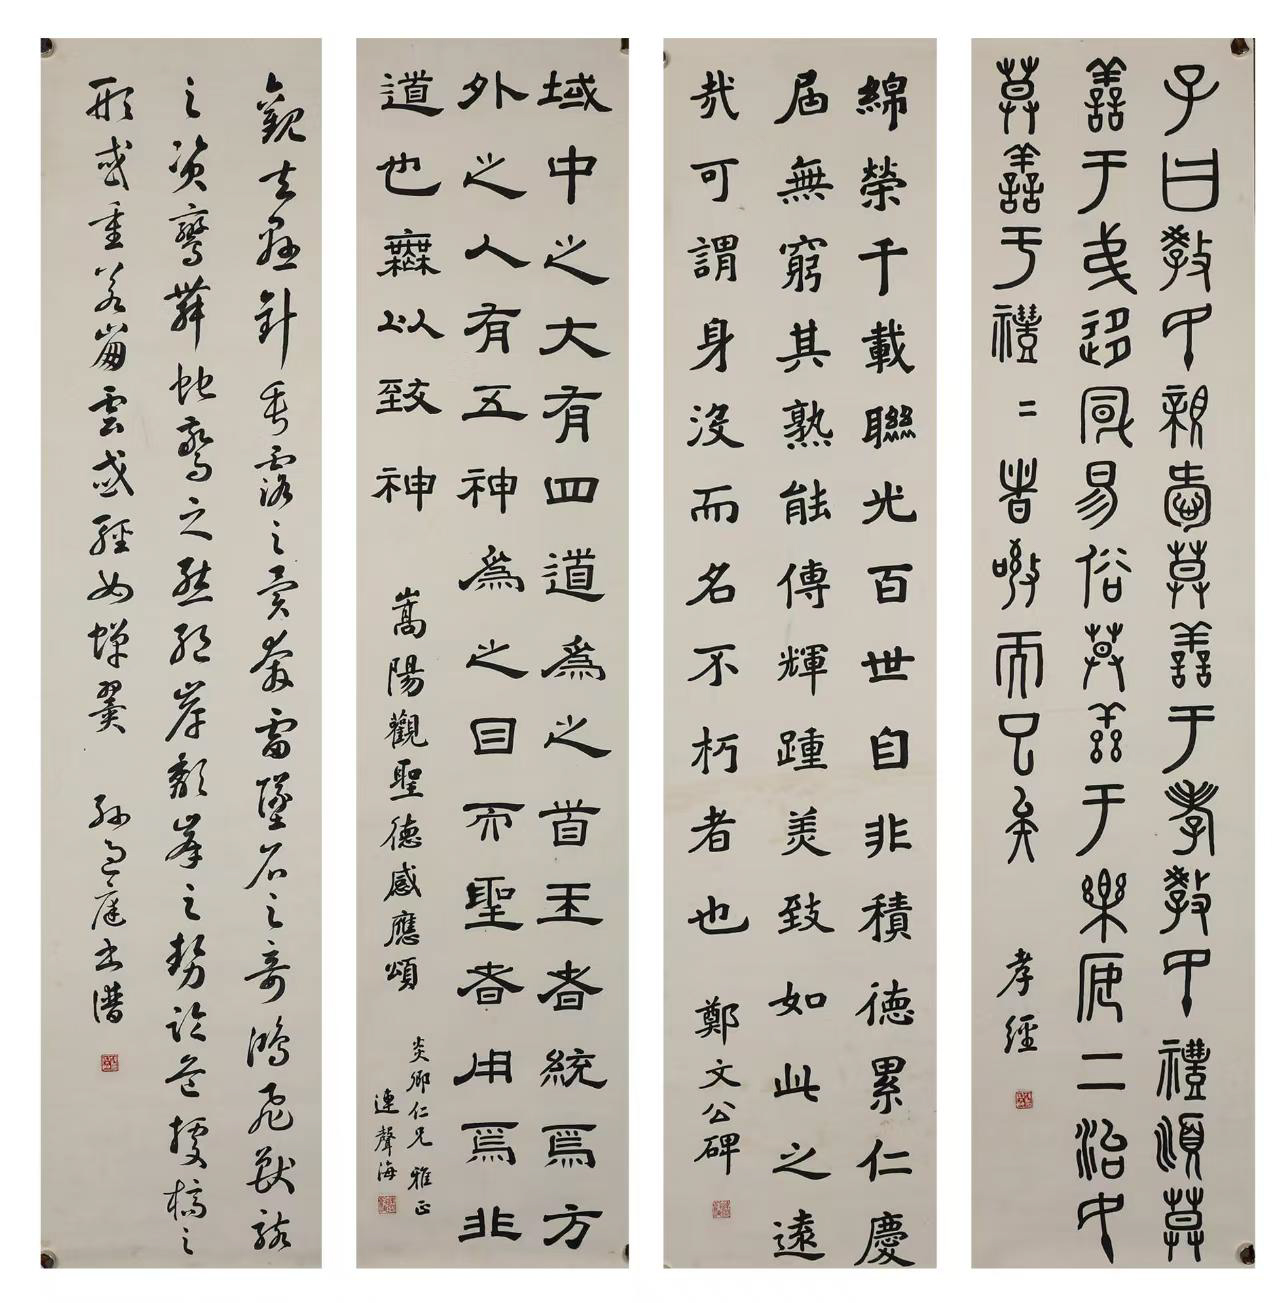 子曰教民親愛莫善于孝教民禮順莫
善于弟迻風易俗莫善于樂安二治民
莫善于禮〻者敬而已矣
孝經
綿榮千載聯光百世自非積德累仁慶
屆無窮其熟能傳輝踵美致如此之遠
哉可謂身沒而名不朽者也
鄭文公碑
域中之大有四道為之首王者統焉方
外之人有五神為之目而聖者用焉非
道也無以致神
嵩陽觀聖德感應頌
炎卿仁兄雅正
連聲海
觀夫懸針垂露之異奔雷墜石之奇鴻飛獸駭
之資鸞舞蛇驚之態絕岸頹峯之勢臨危據槁之
形或重若崩雲或輕如蟬翼
孫過庭書譜